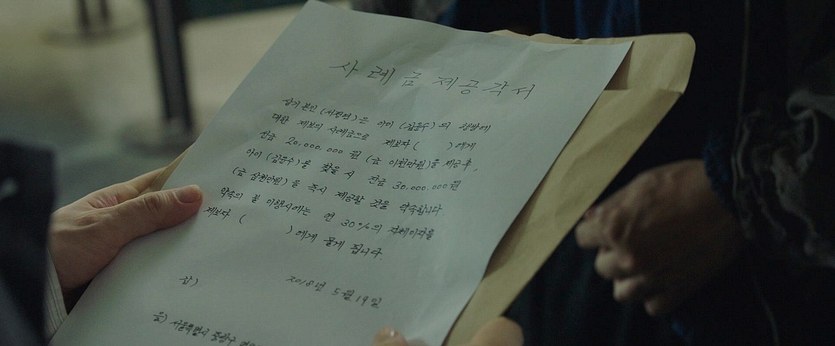 사례금제공각서
상기 본인(서정연)은 아이 (김윤수)의 실종에
대한 제보의 사례금으로 제보자 ( )에게
선금 20.000.000 원 (금 이천만원)을 제공후,
아이 (김윤수)을 찾을 시 잔금 30.000.000원
(금 삼천만원)을 즉시 제공할 것을 약속합니다
약속의 불 이행시에는 연 30%의 지체이자를
제보자 ( )에게 물게 됩니다
2018년 5월 19일
서울특별시